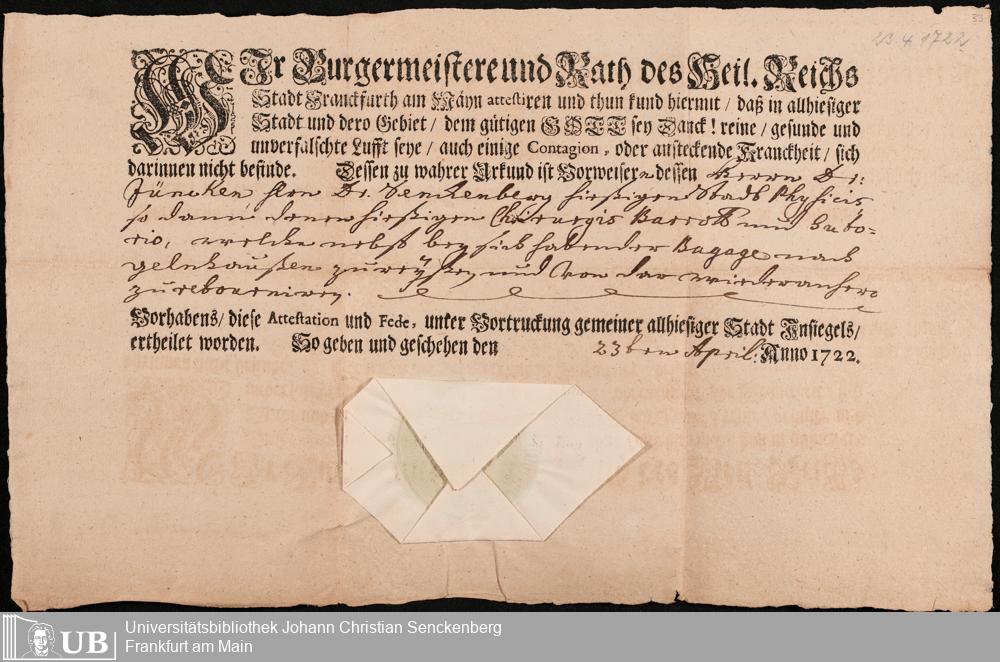 33
23.4.1722
WEIr Burgermeistere und Rath des Heil. Reichs
Stadt Franckfurth am Mäyn attestiren und thun kund hiermit / daß in allhiesiger
Stadt und dero Gebiet / dem gütigen GOTT sey Danck! reine / gesunde und
unverfälschte Lufft seye / auch einige Contagion, oder ansteckende Kranckheit / sich
darinnen nicht befinde. Dessen zu wahrer Urkund ist Vorweisern dessen Herrn Dr:
Jüncken, Hrn Dr. Senckenberg hiesigen Stadt Physicis
so dann denen hiesigen Chirurgis Barroth und Suto-
rio, welche nebst bey sich habender Bagage nach
gelnhaußen zu reyßen und von dar wieder anhero
zu retourniren.
Vorhabens / diese Attestation und Fede, unter Vortruckung gemeiner allhiesiger Stadt Insiegels /
ertheilet worden. So geben und geschehen den 23ten April. Anno 1722.
UB
Universitätsbibliothek Johann Christian Senckenberg
Frankfurt am Main